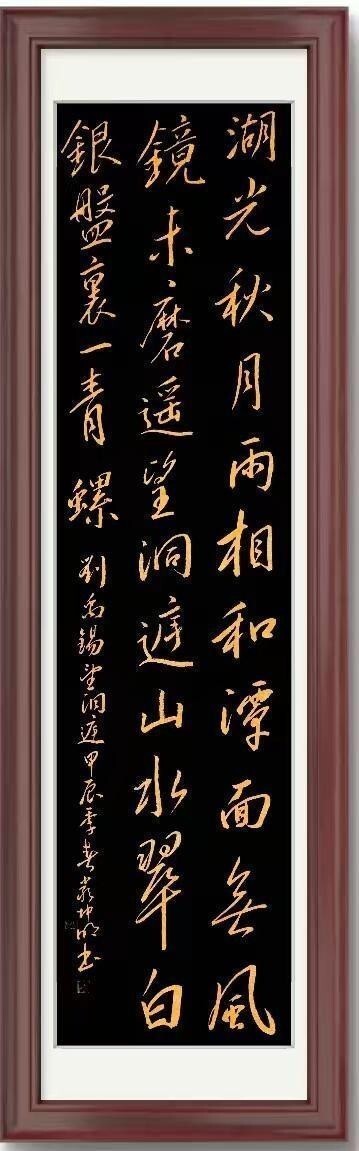 湖光秋月兩相和潭面無風
鏡未磨遥望洞庭山水翠白
銀盤裏一青螺 劉禹錫望洞庭甲辰季春坤明书